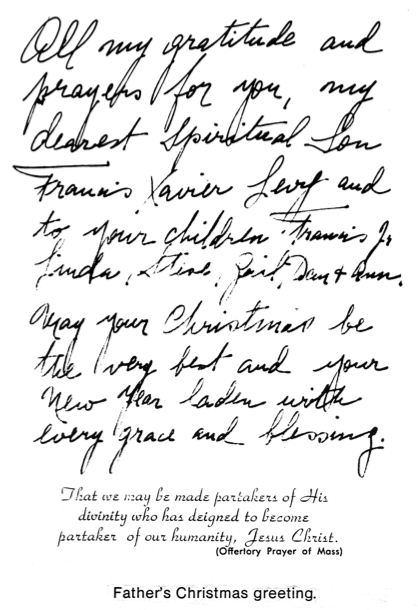 All my gratitude and
prayers for you, my
dearest Spiritual Son
Francis Xavier Levy and
to your children Francis Jr,
Linda, Steve, Gail, Dan + Ann.
May your Christmas be
the very best and your
New Year laden with
every grace and blessing.
That we may be made partakers of His
divinity who has deigned to become
partaker of our humanity, Jesus Christ.
(Offertory Prayer of Mass)
Father's Christmas greeting.